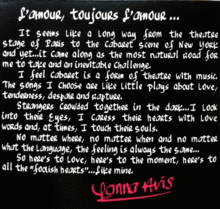 L'amour, toujours L'amour ...
It seems like a long way from the theatre
stage of Paris to the cabaret scene of New York
and yet...it came along as the most natural road for
me to take and an inevitable challenge.
I feel cabaret is a form of theatre with music.
The songs I choose are like little plays about love,
tenderness, despair and rapture.
Strangers crowded together in the dark...I look
into their eyes, I caress their hearts with love
words and, at times, I touch their souls.
No matter where, no matter when and no matter
what the language, the feeling is always the same...
So here's to Love, here's to the moment, here's to
all the "foolish hearts"...like mine.
Yanna Avis